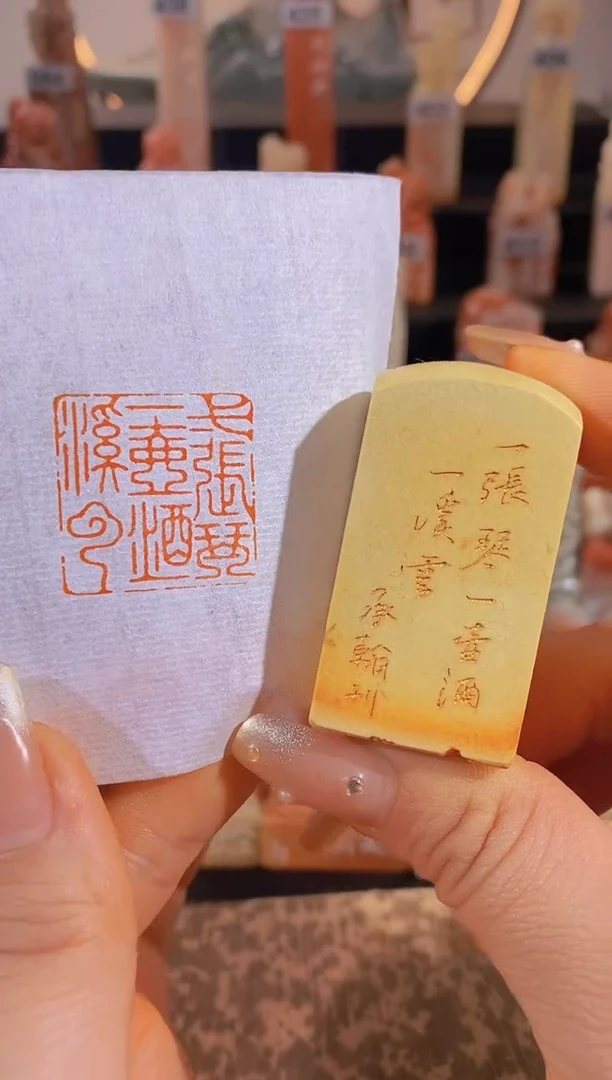 一張琴
一壺酒
一溪云
一張琴一壺酒
一溪雲
承翰刊